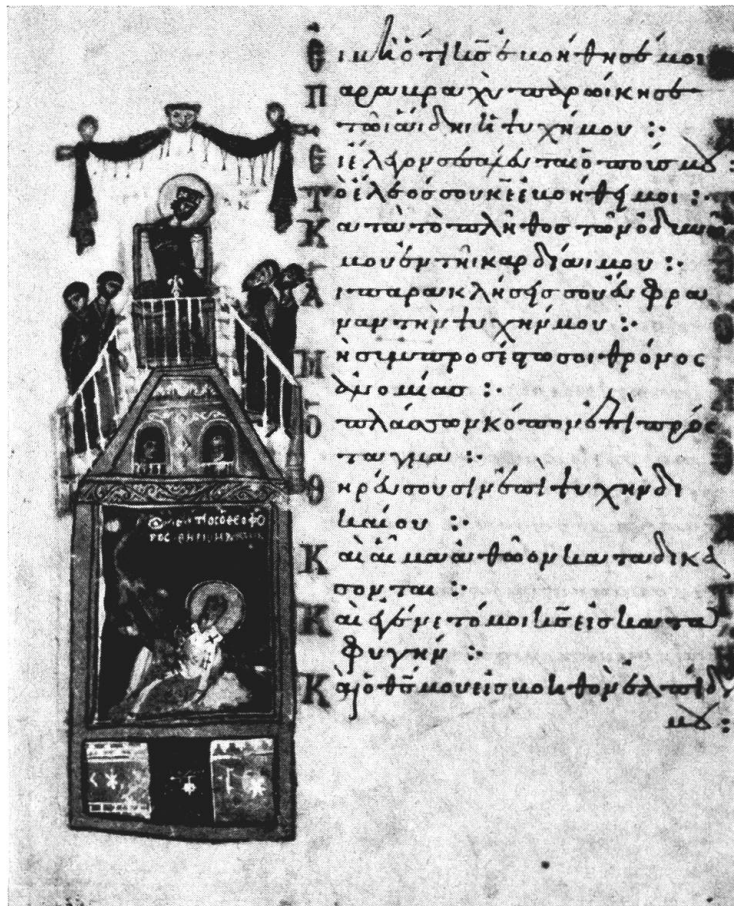 Εἰ μὴ ὅτι κ̅ς̅ ἐβοήθησέ μοι
παρὰ βραχὺ παρῴκησε
τῶι ἅιδηι ἡ ψυχή μου :·
Εἰ ἔλεγον σεσάλευται ὁ πούς μου :
Τὸ ἔλεός σου κ̅ε̅ ἐβοήθει μοι :·
Κατὰ τὸ πλῆθος τῶν ὀδυνῶν
μου ἐν τῆι καρδίαι μου :·
Αἱ παρακλήσεις σου εὔφρα
ναν τὴν ψυχήν μου :·
Μὴ συμπροσέστω σοι θρόνος
ἀνομίας :·
ὁ πλάσσων κόπον ἐπὶ πρός
ταγμα :·
Θηρεύσουσιν ἐπὶ ψυχὴν δι
καίου :·
Καὶ αἷμα ἀθῶον καταδικά
σονται :·
Καὶ ἐγένετό μοι κ̅ς̅ εἰς κατα
φυγήν :·
Καὶ ὁ θ̅ς̅ μου εἰς βοηθὸν ἐλπίδος
μου :
ὁ θεοφό
ρος